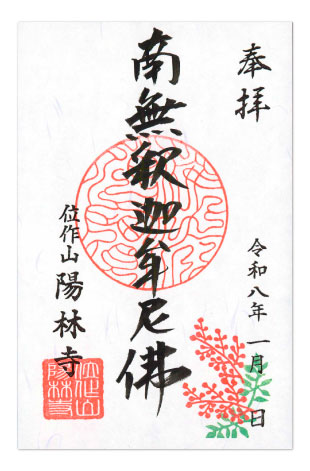 奉拝
令和八年 一月 日
南無釈迦牟尼佛
位作山 陽林寺
位作山
陽林寺